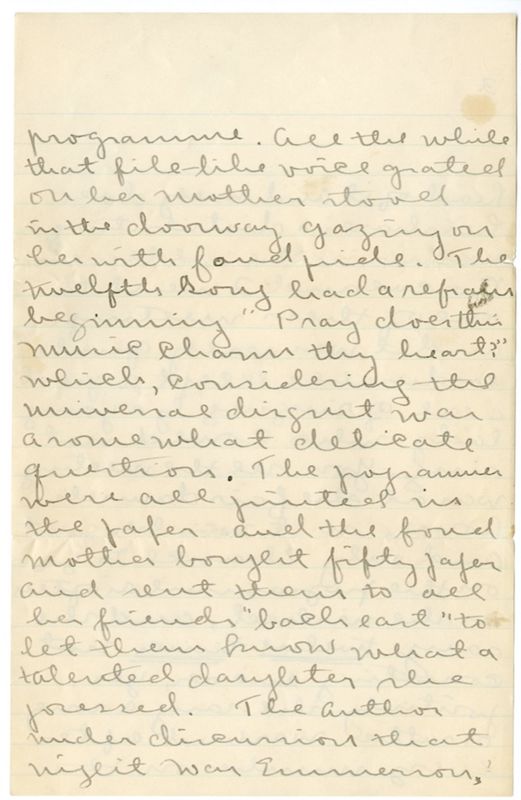 programme. All the while
that file-like voice grated
on her mother stood
in the doorway gazing on
her with fond pride. The
twelfth song had a refrain
beginning "Pray does this
music charm thy heart?"
which, considering the
universal disgust was
a somewhat delicate
question. The pogrammes
were all printed in
the paper and the fond
mother bought fifty paper
and sent them to all
her friends "back east" to
let them know what a
talented daughter she
possessed. The author
under discussion that
night was Emmerson,